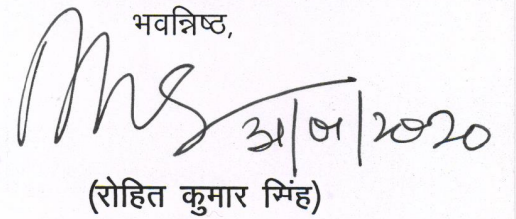 भवन्निष्ठ,
2020
(रोहित कुमार सिंह)